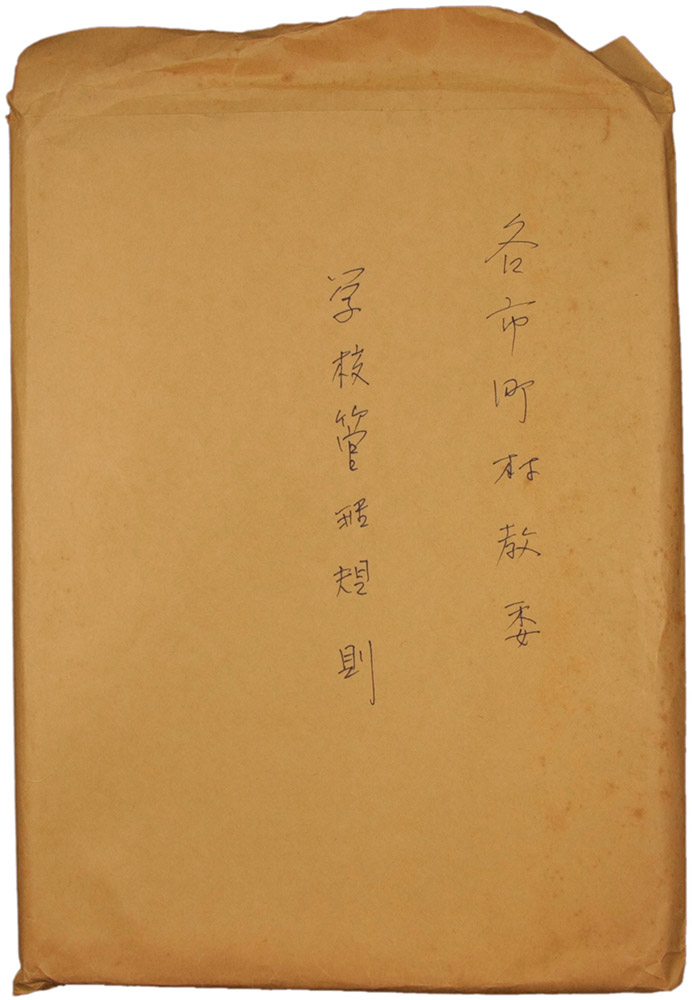 各市町村教委
学校管理規則